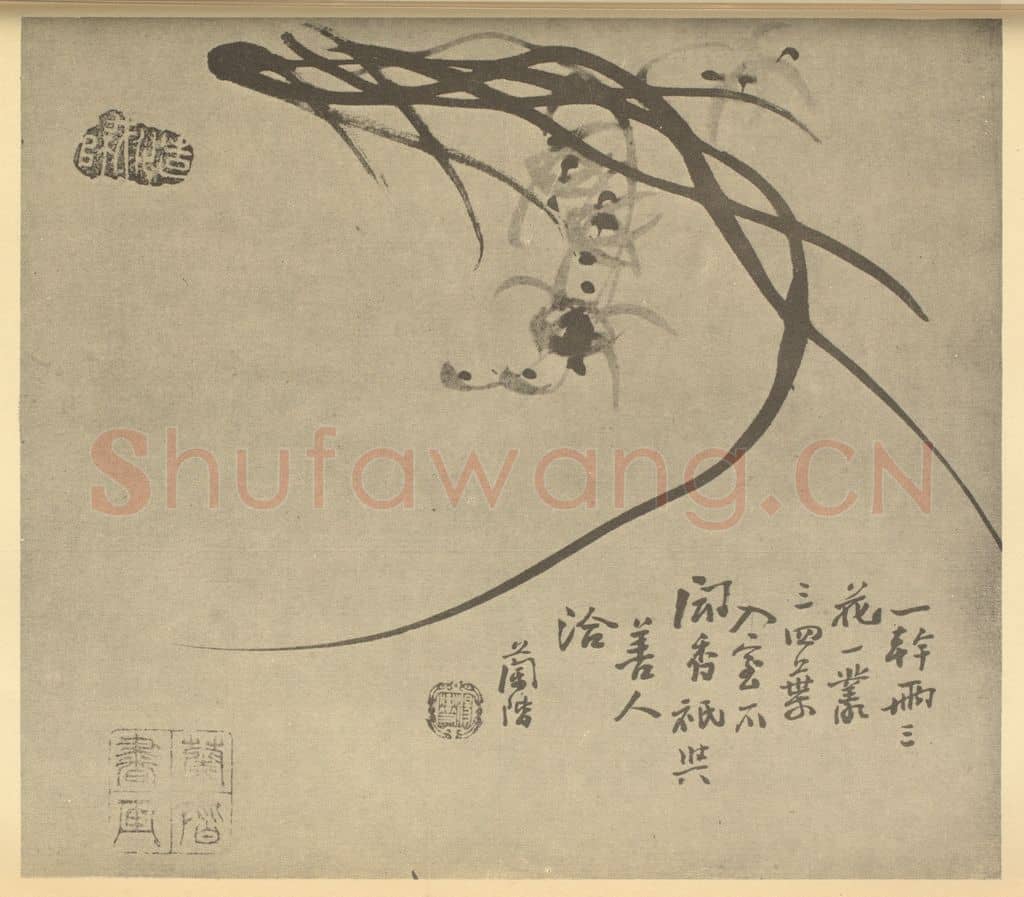 Shufawang.CN
一幹兩三
花一叢
三四葉
入室不
聞香祇與
善人
洽
蘭階
蘭階
書画